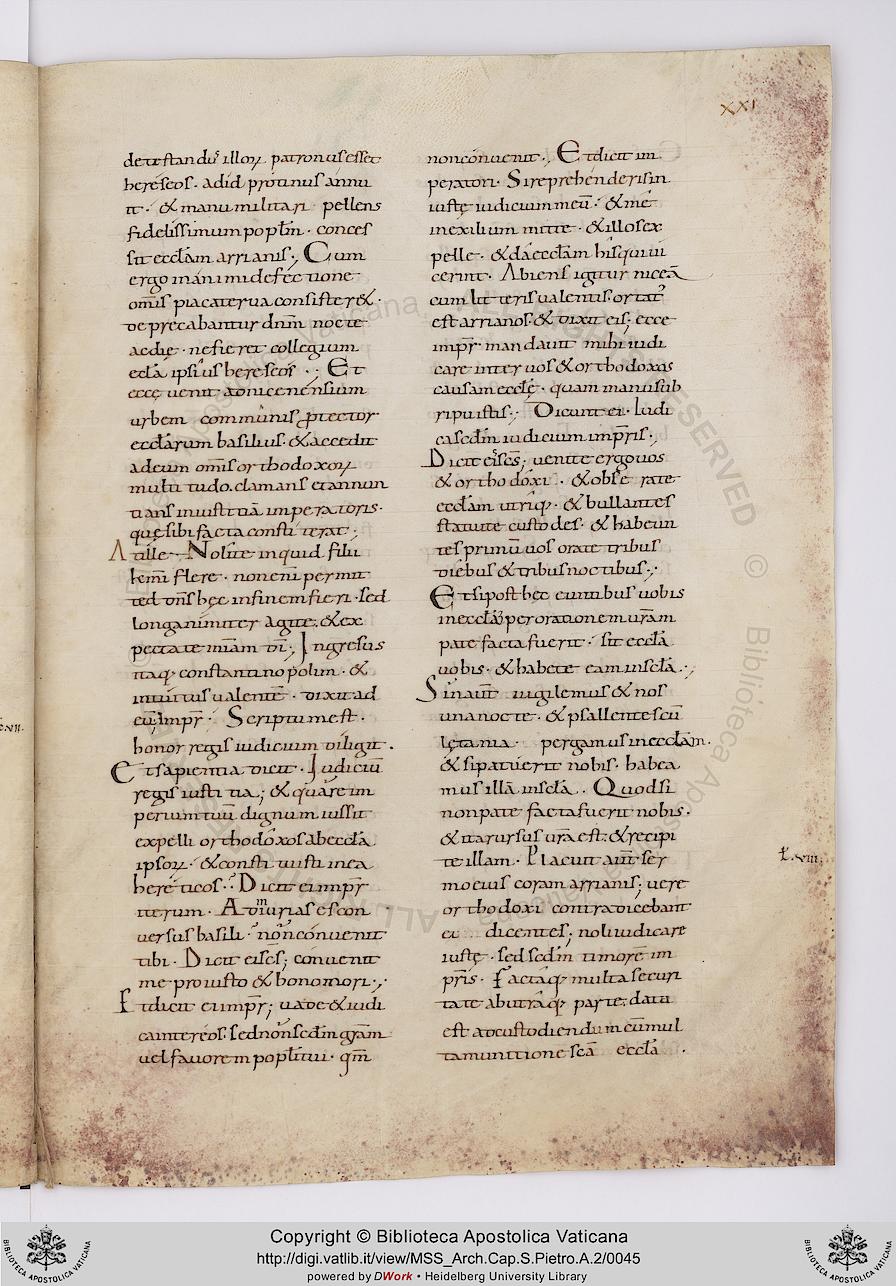 XXI
detestandus illoꝝ patronus esset
hereseos · ad id protinus annu
it · & manu militari pellens
fidelissimum popłm · conces
sit ecclam arrianis ·, Cum
ergo in animi defectione
om̅s pia caterua consister& ·
deprecabantur dn̅m nocte
ac die · ne fieret collegium
eccła ipsius hereseos ·, Et
ecce uenit ad nicenensium
urbem communis ꝓtector
eccłarum basilius · & accedit
ad eum om̅s orthodoxoꝝ
multitudo clamans et annun
tians iniustitiā imperatoris ·
quę sibi facta constiterat ·,
At ille Nolite inquid filii
hem̄ flere · non enī permit
ted dn̅s hęc in finem fieri · sed
longanimiter agite · & ex
pectate mīam dī ·, Ingresus
itaq; constantinopolim · &
intuitus ualentē · dixit ad
eū; imꝑr · Scriptum est ·
honor regis iudicium diligit ·
Et sapientia dicit · Iudiciū
regis iustitia; & quare im
perium tuū dignum iussit
expelli orthodoxos ab eccła
ipsoꝝ · & constituisti in ea
hereticos ·, Dicit ei imꝑr
iterum · Ad iniurias es con
uersus basili · non conuenit
tibi · Dicit ei s̅c̅s; conuenit
me pro iusto & bono mori ·,
Et dicit ei imꝑr; uade & iudi
ca inter eos · sed non scd̅m gr̅am
uel fauorem popłi tui · qm̅
non conuenit ·, Et dicit im
peratori · Si reprehenderis in
iustę iudicium meū · & me
in exilium mitte · & illos ex
pelle · & da ecclam his qui ui
cerint · Abiens igitur niceā
cum litteris ualentis · ortatꝰ
est arrianos · & dixit eis; ecce
imꝑr mandauit mihi iudi
care inter uos & orthodoxos
causam ecclę · quam manu sub
ripuistis ·, Dicunt ei · Iudi
ca scd̅m iudicium imꝑris ·,
Dicit ei s̅c̅s; uenite ergo uos
& orthodoxi · & obserate
ecclam utriq; · & bullantes
statuite custodes · & habeun
tes primū uos orate tribus
diebus & tribus noctibus ·,
Et si post hęc euntibus uobis
in ecclā per orationem ur̅am
patefacta fuerit · sit eccła
uobis · & habete eam in scła ·,
Sin aut̅ uigilemus & nos
una nocte · & psallentes cū
lętania · pergamus in ecclam ·
& si patuerit nobis · habea
mus illā in scła · Quod si
non patefacta fuerit nobis ·
& ita rursus ur̅a est · & recipi
te illam · Placuit aut̅ ser
mo eius coram arrianis; uere
orthodoxi contradicebant
ei dicentes; noli iudicare
iustę · sed scd̅m timorē im
ꝑris · Factaq; multa securi
tate ab utraq; parte; datū
est ad custodiendum cū mul
ta munitione scā eccłā ·